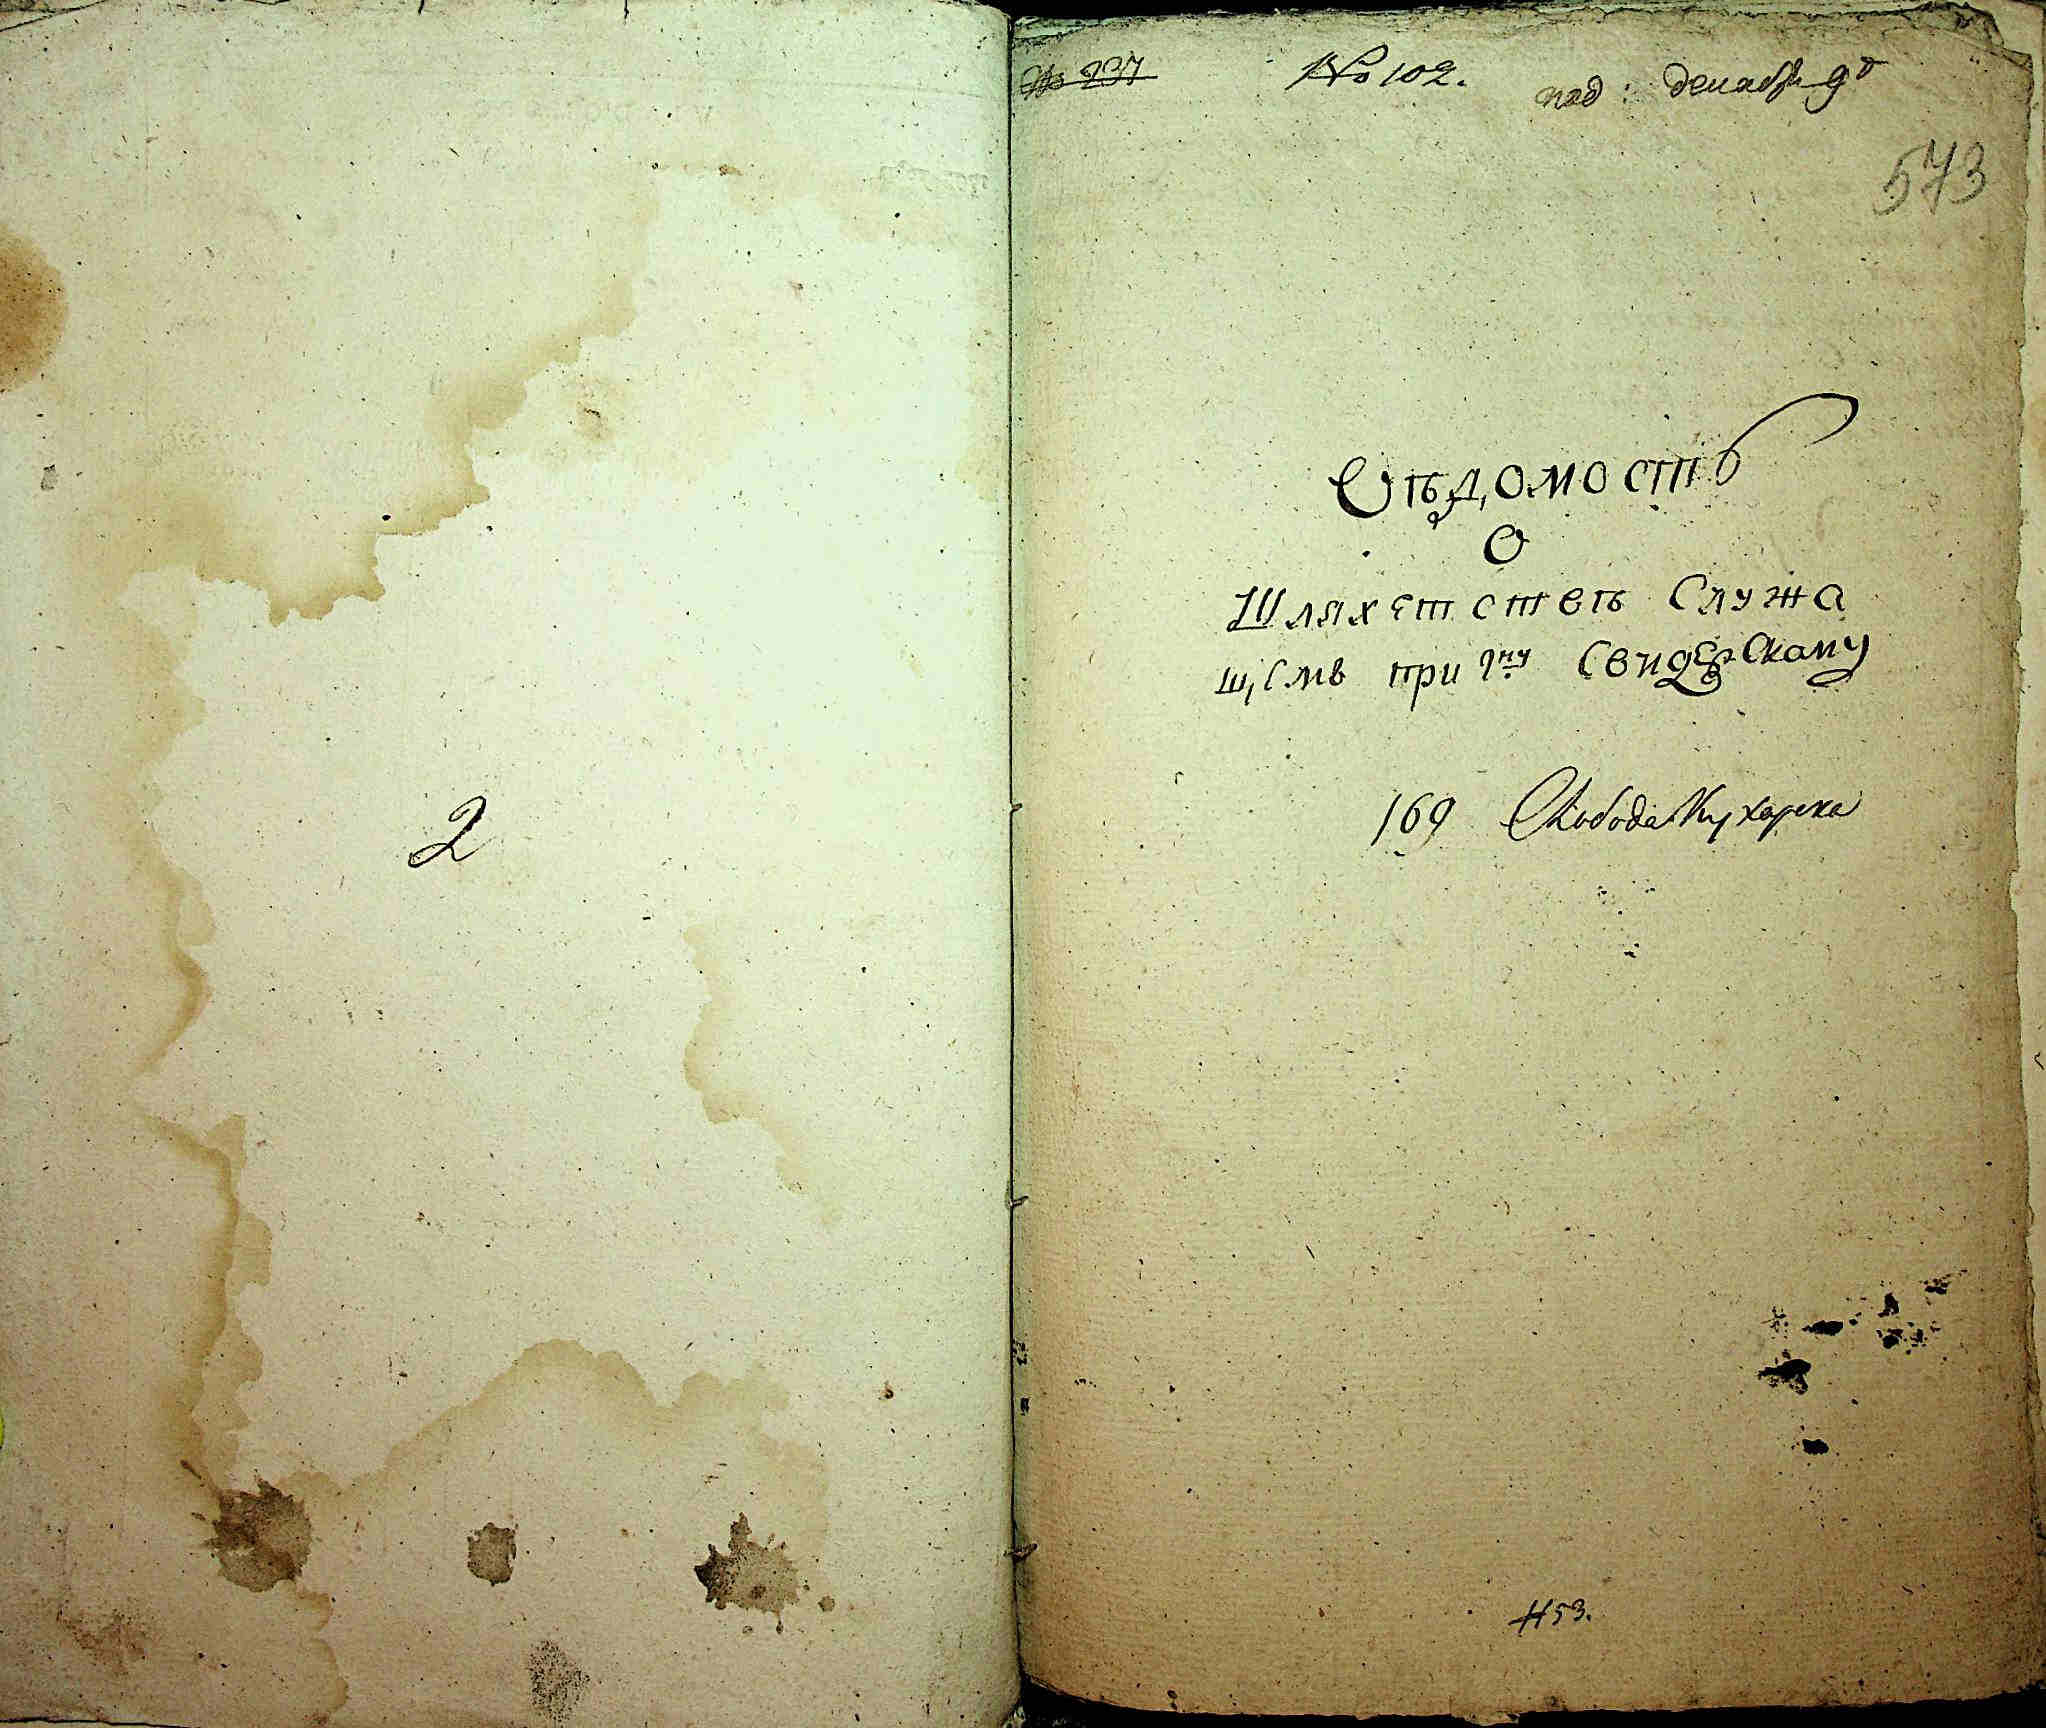 2
№ 237
№ 102.
под: декабря 9го
573
Вѣдомость
О
Шляхетствѣ Служа
щемъ при Гну Свидерскому
169 Слобода Кухарска
№ 53.